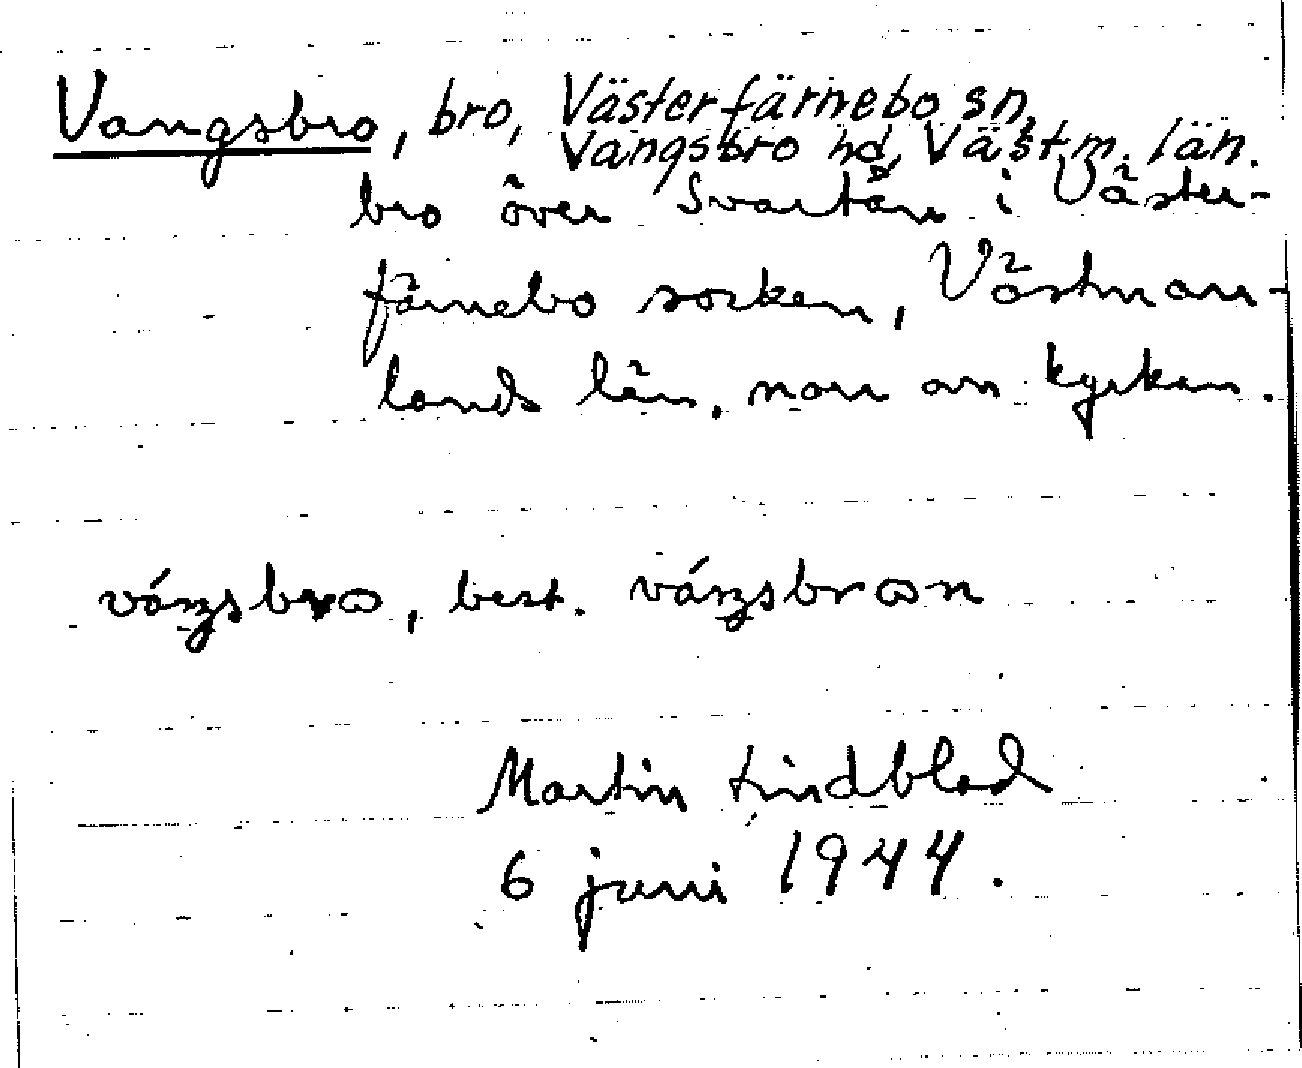 Vangsbro, bro, Västerfärnebo sn,
Vangsbro hd, Västm. län.
bro över Svartån i Väster-
färnebo socken, Västman-
lands län, norr om kyrkan.
best.
Martin Lindblad
6 juni 1944.